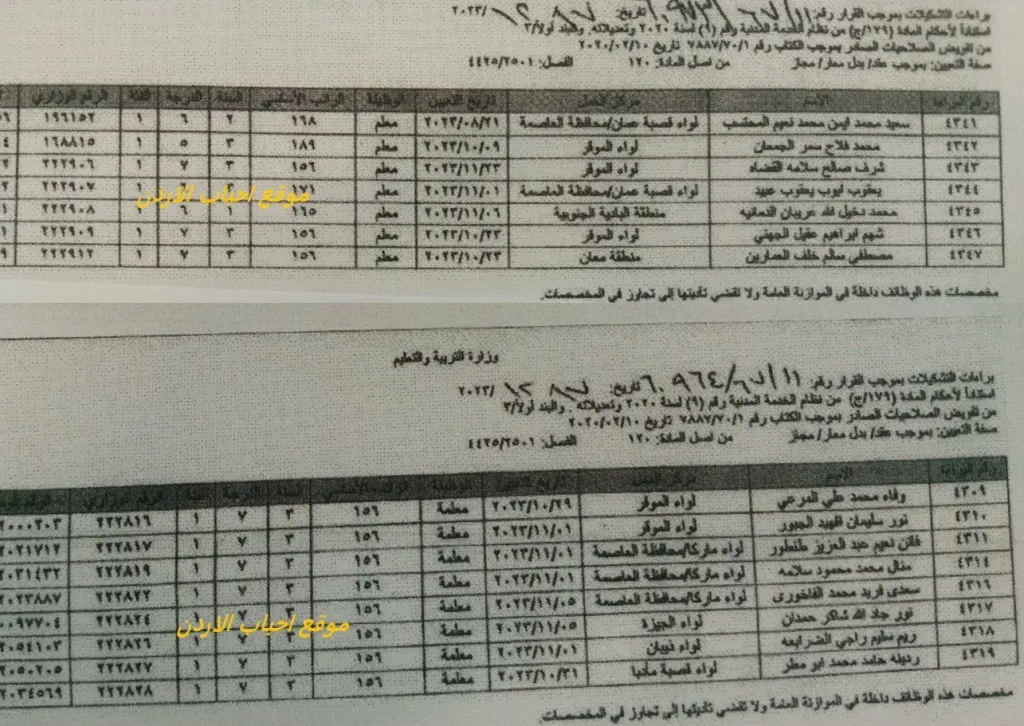 براءات التشكيلات بموجب القرار رقم: تاريخ: ٢٠٢٣/
استناداً لأحكام المادة (١٧٩/ج) من نظام الخدمة المدنية رقم (٩) لسنة ٢٠٢٠ وتعديلاته. والبند اولاً/٣
من تفويض الصلاحيات الصادر بموجب الكتاب رقم ٧٨٨٧/٧٠/١ تاريخ ٢٠٢٠/٠٢/١٠
صفة التعيين: بموجب عقد/ بدل معار/ مجاز من اصل المادة: ١٢٠ الفصل: ٤٤٢٥/٢٥٠١
رقم البراءة الاسم مركز العمل تاريخ التعيين الوظيفة الراتب الأساسي السنة الدرجة الفئة الرقم الوزاري
٤٣٤١ سعيد محمد ايمن محمد نعيم المحتسب لواء قصبة عمان/محافظة العاصمة ٢٠٢٣/٠٨/٢١ معلم ١٦٨ ٢ ٦ ١ ١٩٦١٥٢
٤٣٤٢ محمد فلاح سمر الجمعان لواء الموقر ٢٠٢٣/١٠/٠٩ معلم ١٨٩ ٣ ٥ ١ ١٦٨٨١٥
٤٣٤٣ شرف صالح سلامه القضاه لواء الموقر ٢٠٢٣/١١/٢٣ معلم ١٥٦ ٣ ٧ ١ ٢٢٢٩٠٦
٤٣٤٤ يعقوب ايوب يعقوب عبيد لواء قصبة عمان/محافظة العاصمة ٢٠٢٣/١١/٠١ معلم ١٧١ ٢٢٢٩٠٧
موقع احباب الاردن
٤٣٤٥ محمد دخيل الله عريبان الدمانيه منطقة البادية الجنوبية ٢٠٢٣/١١/٠٦ معلم ١٦٥ ١ ٦ ١ ٢٢٢٩٠٨
٤٣٤٦ شهم ابراهيم عقيل الجهني لواء الموقر ٢٠٢٣/١٠/٢٣ معلم ١٥٦ ٣ ٧ ١ ٢٢٢٩٠٩
٤٣٤٧ مصطفى سالم خلف العمارين منطقة معان ٢٠٢٣/١٠/٢٣ معلم ١٥٦ ٣ ٧ ١ ٢٢٢٩١٢
مخصصات هذه الوظائف داخلة في الموازنة العامة ولا تقضي تأديتها إلى تجاوز في المخصصات.
وزارة التربية والتعليم
براءات التشكيلات بموجب القرار رقم: تاريخ: ٢٠٢٣/
استناداً لأحكام المادة (١٧٩/ج) من نظام الخدمة المدنية رقم (٩) لسنة ٢٠٢٠ وتعديلاته. والبند اولاً/٣
من تفويض الصلاحيات الصادر بموجب الكتاب رقم ٧٨٨٧/٧٠/١ تاريخ ٢٠٢٠/٠٢/١٠
صفة التعيين: بموجب عقد/ بدل معار/ مجاز من اصل المادة: ١٢٠ الفصل: ٤٤٢٥/٢٥٠١
رقم البراءة الاسم مركز العمل تاريخ التعيين الوظيفة الراتب الأساسي السنة الدرجة الفئة الرقم الوزاري
٤٣٠٩ وفاء محمد علي المرعي لواء الموقر ٢٠٢٣/١٠/٢٩ معلمة ١٥٦ ٣ ٧ ١ ٢٢٢٨١٦ ٢٠٠٠٢٠٣
٤٣١٠ نور سليمان فهيد الجبور لواء الموقر ٢٠٢٣/١١/٠١ معلمة ١٥٦ ٣ ٧ ١ ٢٢٢٨١٧ ٢٠٢١٧١٢
٤٣١١ فاتن نعيم عبد العزيز طنطور لواء ماركا/محافظة العاصمة ٢٠٢٣/١١/٠١ معلمة ١٥٦ ٣ ٧ ١ ٢٢٢٨١٩ ٢٠٣١٤٣٢
٤٣١٤ منال محمد محمود سلامه لواء ماركا/محافظة العاصمة ٢٠٢٣/١١/٠١ معلمة ١٥٦ ٣ ٧ ١ ٢٢٢٨٢٢ ٢٠٢٣٨٨٧
٤٣١٦ سعدى فريد محمد الفاخوري لواء ماركا/محافظة العاصمة ٢٠٢٣/١١/٠٥ معلمة ١٥٦ ٣ ٢٢٢٨٢٤ ٠٠٩٧٧٠٤
موقع احباب الاردن
٤٣١٧ نور جاد الله شاكر حمدان لواء الجيزة ٢٠٢٣/١١/٠٥ معلمة ١٥٦ ٢٢٢٨٢٦ ٢٠٥٤١٠٣
٤٣١٨ ريم سليم راجي الضرابعه لواء ذيبان ٢٠٢٣/١١/٠١ معلمة ١٥٦ ٣ ٧ ١ ٢٢٢٨٢٧ ٢٠٥٠٢٠٥
٤٣١٩ ردينه حامد محمد ابو مطر لواء قصبة مادبا ٢٠٢٣/١٠/٣١ معلمة ١٥٦ ٣ ٧ ١ ٢٢٢٨٢٨ ٢٠٣٤٥٦٩
مخصصات هذه الوظائف داخلة في الموازنة العامة ولا تقضي تأديتها إلى تجاوز في المخصصات.